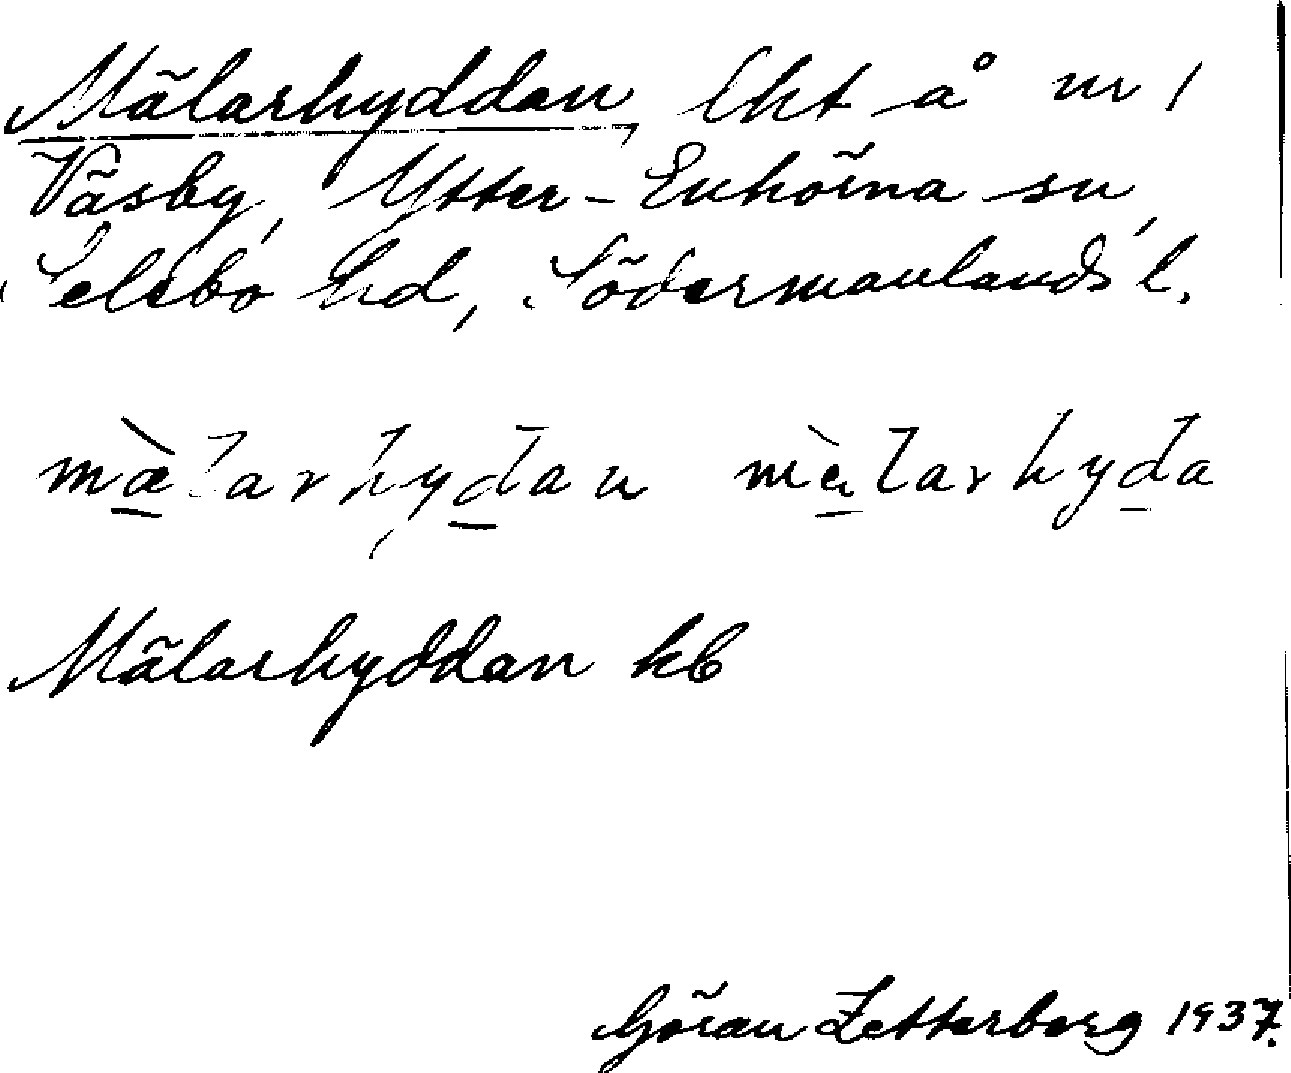 Mälarhyddan, lht å nr 1
Väsby, Ytter-Enhörna sn,
Selebo hd, Södermanlands l.
mæ̀larhydan mæ̀larhyda
Mälarhyddan kb
Göran Zetterberg 1937.